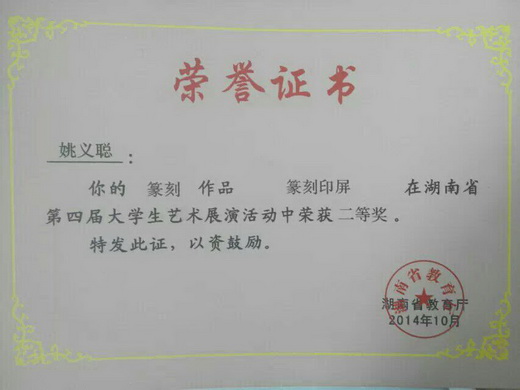 荣誉证书
姚义聪：
你的 篆刻 作品 篆刻印屏 在湖南省
第四届大学生艺术展演活动中荣获 二等奖。
特发此证，以资鼓励。
湖南省教育厅
湖南省教育厅
2014年10月